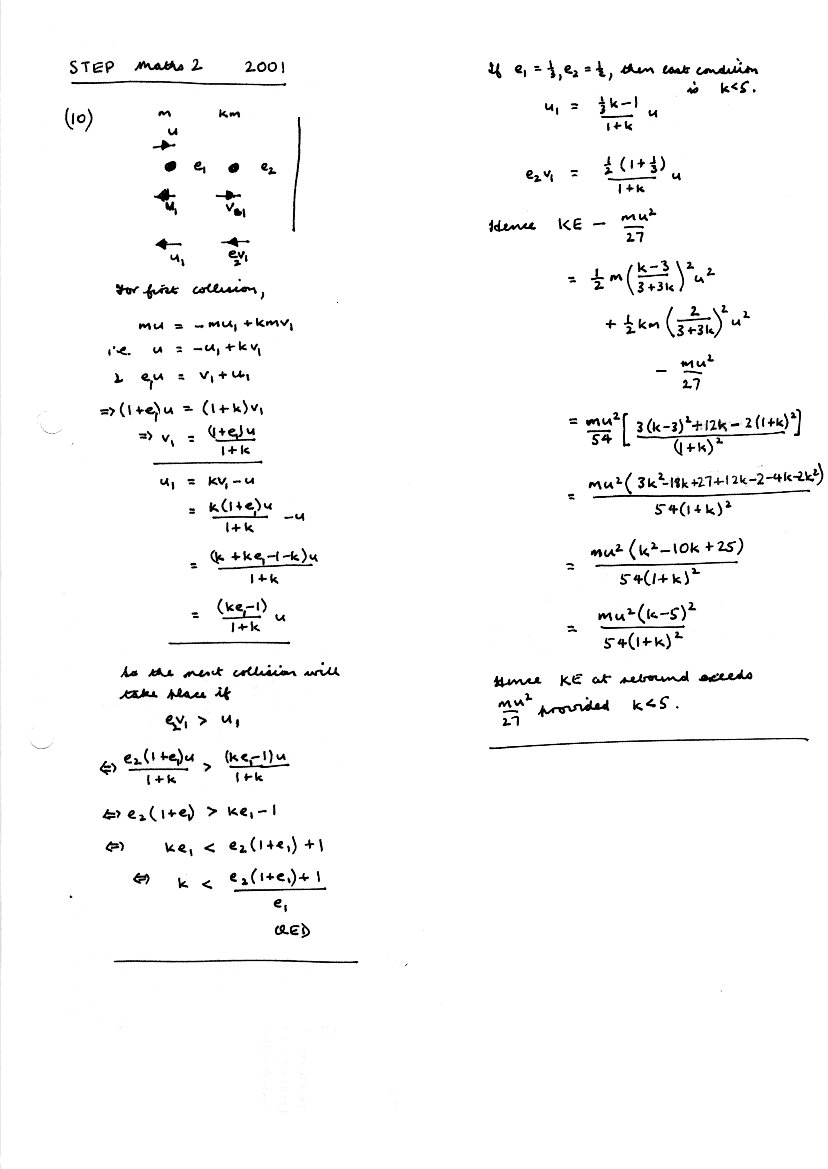 STEP Maths 2 2001
(10)
m km
u
e₁ e₂
u₁ v₁
u₁ e₂v₁
For first collision,
mu = -mu₁ + kmv₁
i.e. u = -u₁ + kv₁
& e₁u = v₁ + u₁
=> (1+e₁)u = (1+k)v₁
=> v₁ = (1+e₁)u / 1+k
u₁ = kv₁ - u
= k(1+e₁)u / 1+k - u
= (k + ke₁ - 1 - k)u / 1+k
= (ke₁-1) / 1+k u
So the next collision will
take place if
e₂v₁ > u₁
⇔ e₂(1+e₁)u / 1+k > (ke₁-1)u / 1+k
⇔ e₂(1+e₁) > ke₁-1
⇔ ke₁ < e₂(1+e₁) + 1
⇔ k < e₂(1+e₁) + 1 / e₁
QED
If e₁ = 1/3, e₂ = 1/2, then last condition
is k<5.
u₁ = 1/3k-1 / 1+k u
e₂v₁ = 1/2(1+1/3) / 1+k u
Hence KE - mu² / 27
= 1/2 m (k-3 / 3+3k)² u²
+ 1/2 km (2 / 3+3k)² u²
- mu² / 27
= mu² / 54 [3(k-3)² + 12k - 2(1+k)² / (1+k)²]
= mu²(3k²-18k+27+12k-2-4k-2k²) / 54(1+k)²
= mu²(k²-10k+25) / 54(1+k)²
= mu²(k-5)² / 54(1+k)²
Hence KE at rebound exceeds
mu² / 27 provided k<5.